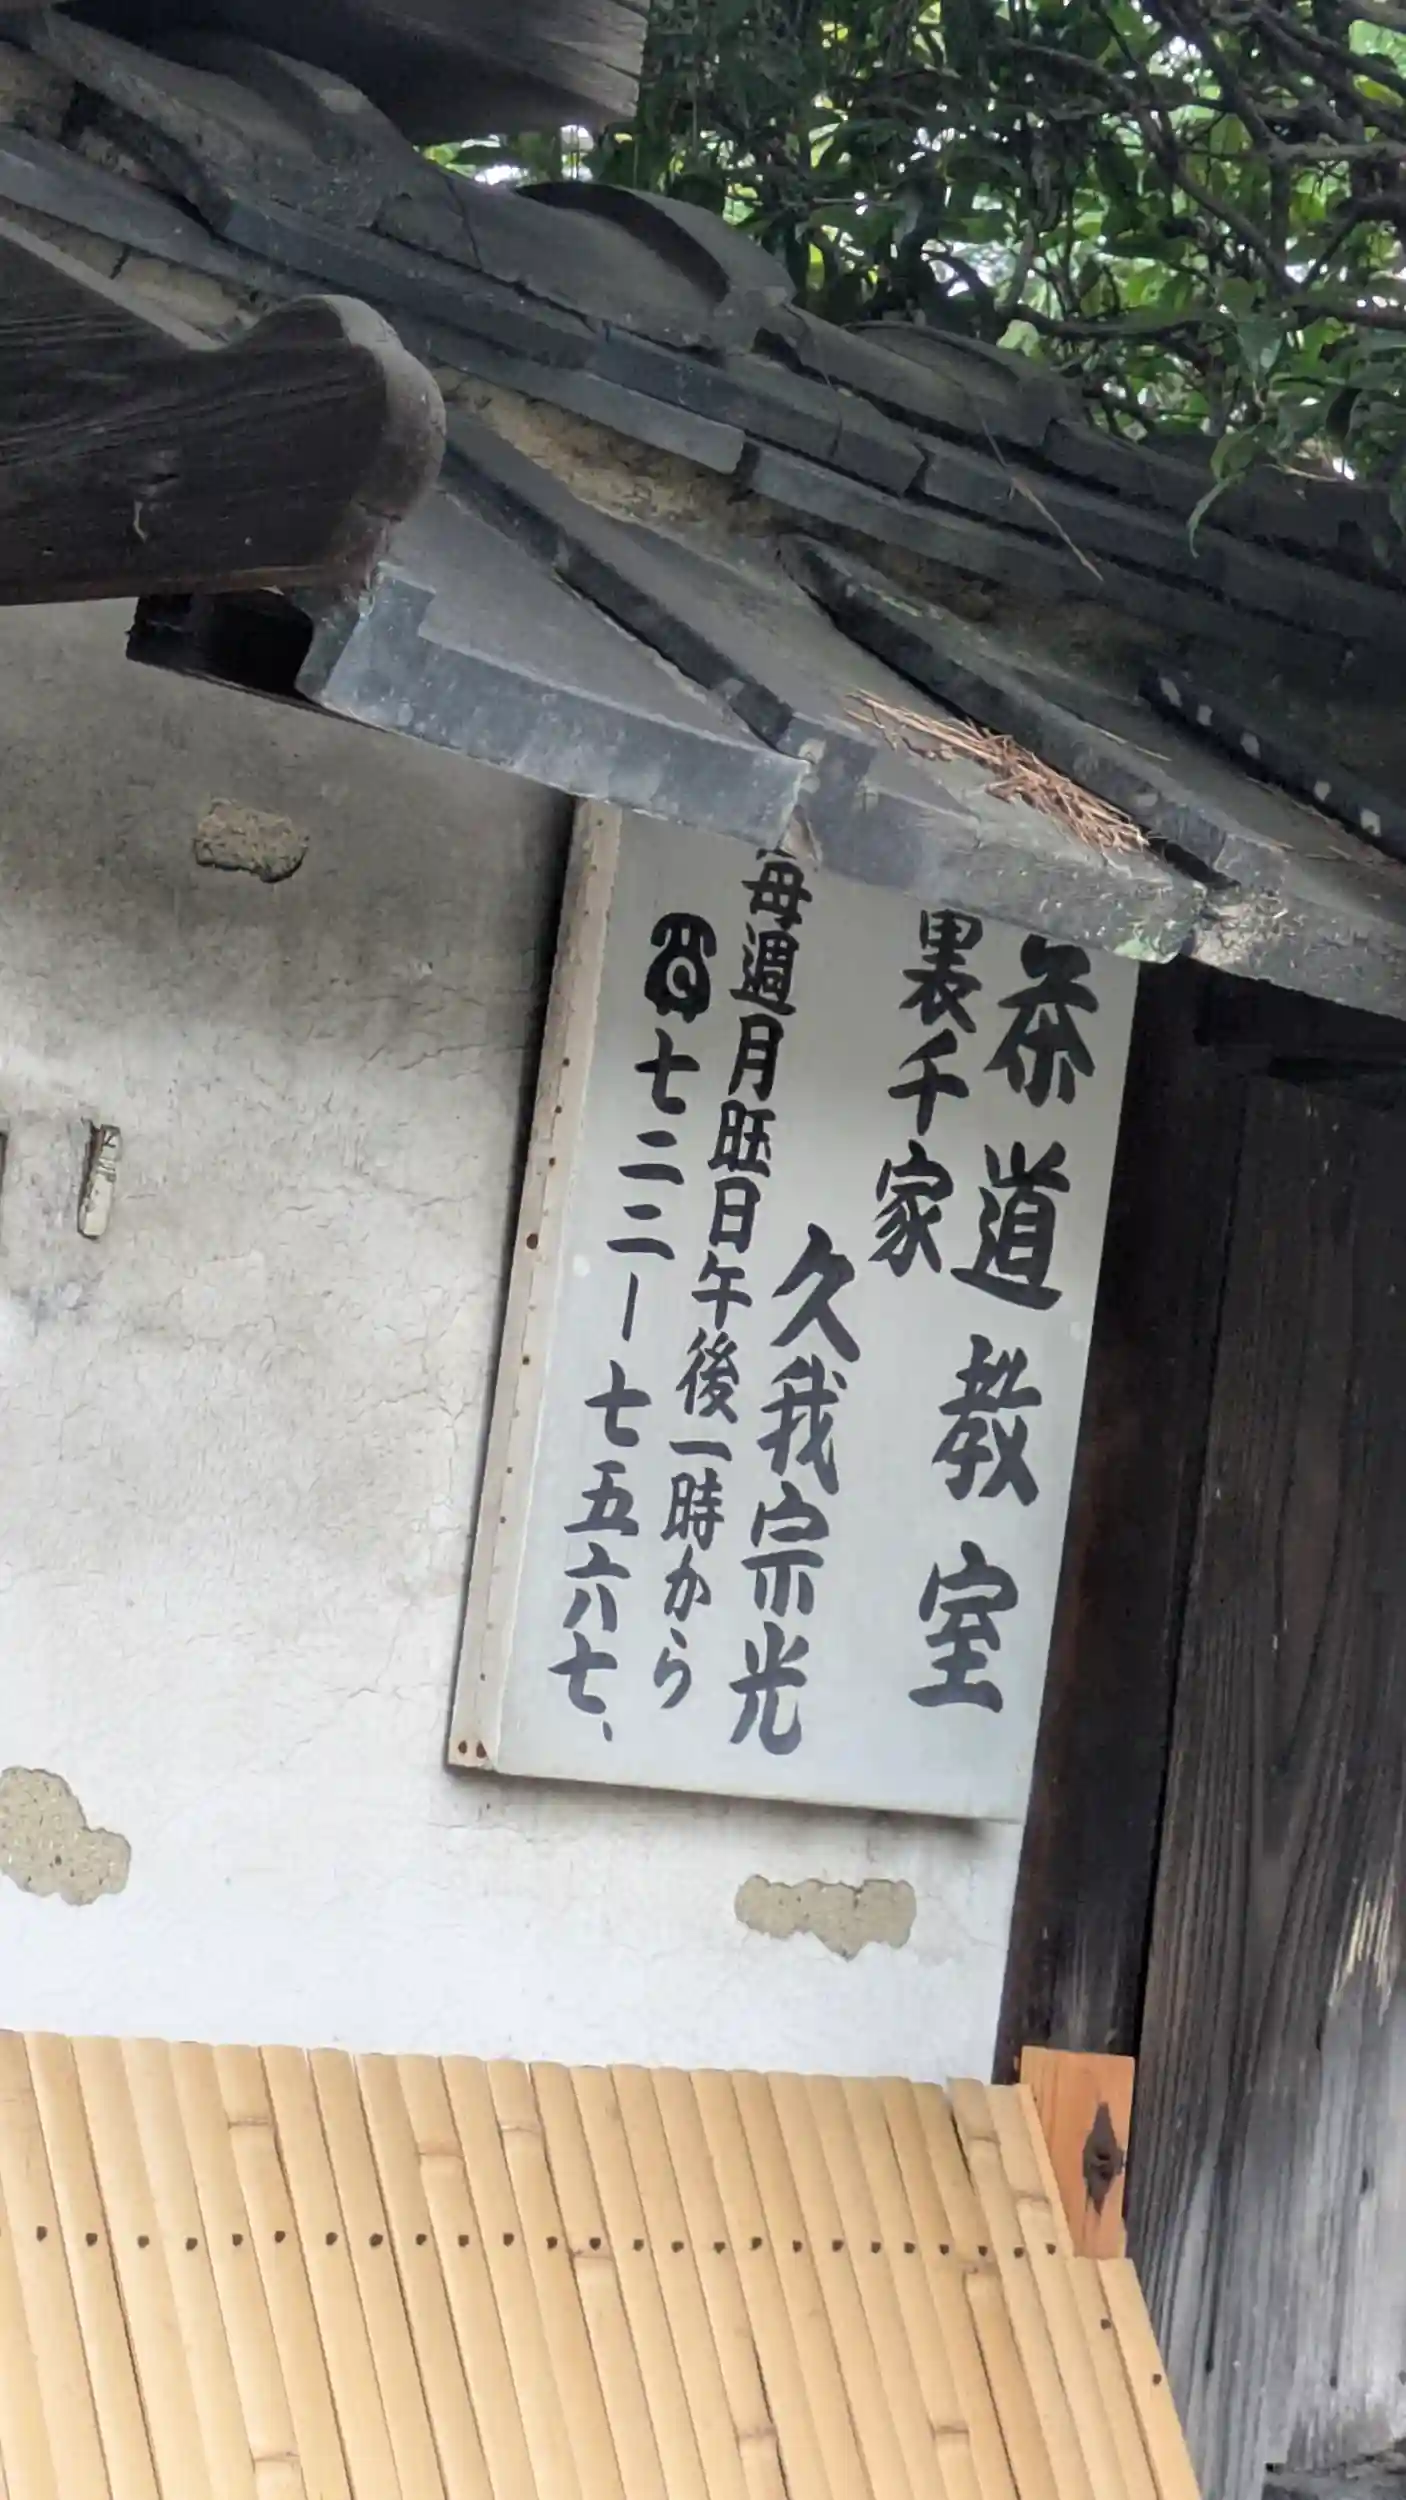 茶道教室
裏千家
久我宗光
毎週月旺日午後一時から
☎七二二ー七五六七、